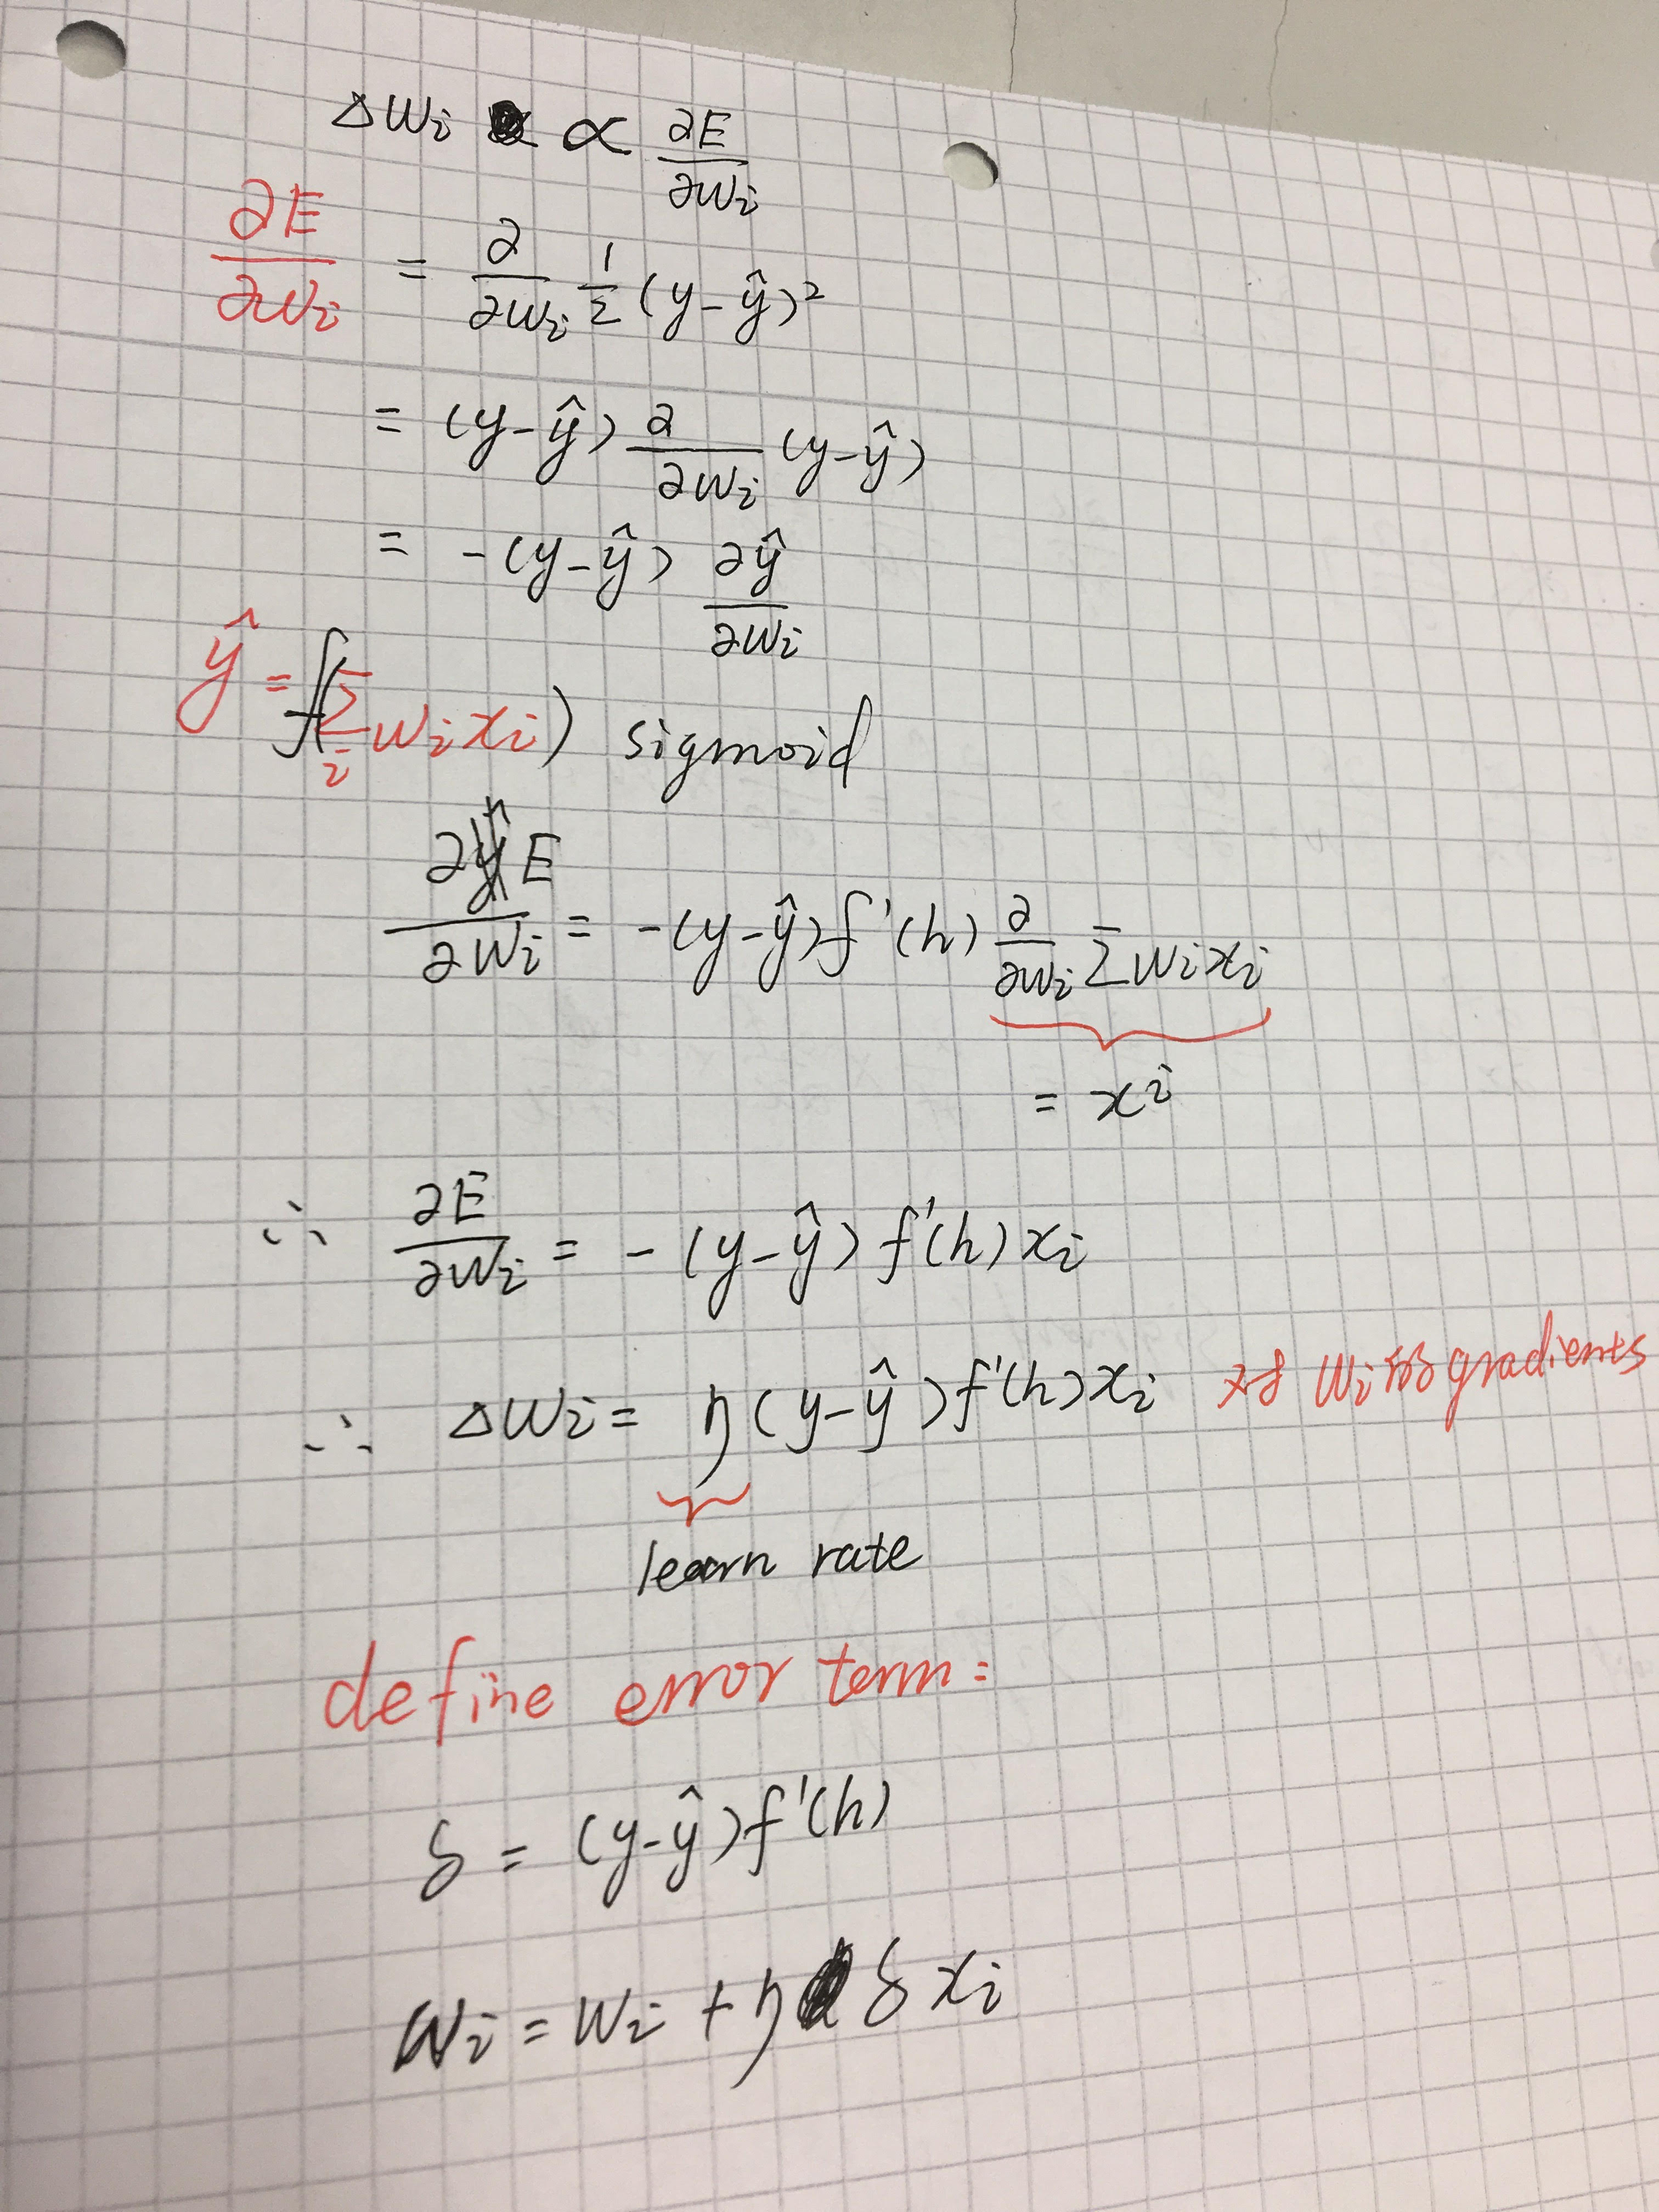 Δwᵢ ∝ ∂E/∂wᵢ
∂E/∂wᵢ = ∂/∂wᵢ 1/2 (y-ŷ)²
= (y-ŷ) ∂/∂wᵢ (y-ŷ)
= -(y-ŷ) ∂ŷ/∂wᵢ
ŷ = f(∑ᵢ wᵢxᵢ) sigmoid
∂E/∂wᵢ = -(y-ŷ)f'(h) ∂/∂wᵢ ∑wᵢxᵢ
= xⁱ
∴ ∂E/∂wᵢ = -(y-ŷ)f'(h)xᵢ
∴ Δwᵢ = η(y-ŷ)f'(h)xᵢ 对 wᵢ的gradients
learn rate
define error term:
δ = (y-ŷ)f'(h)
wᵢ = wᵢ + ηδxᵢ